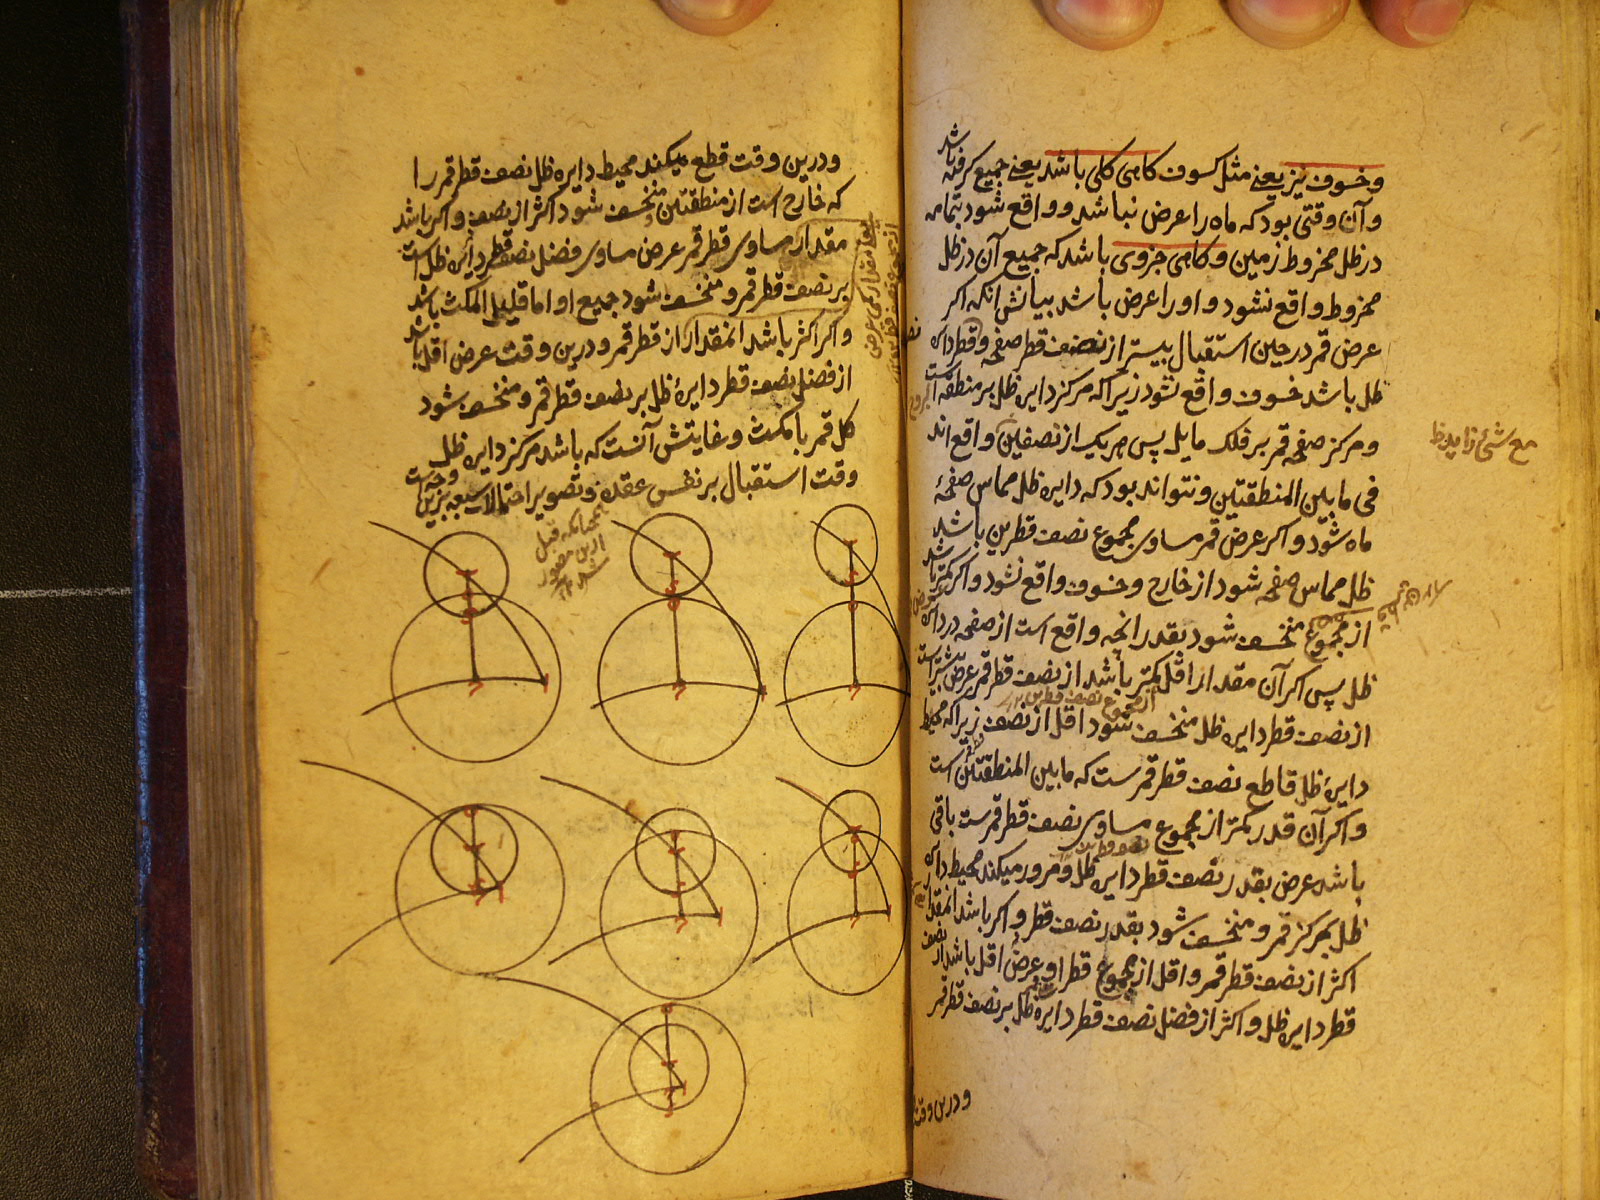 وخسوف نیز یعنے مثل کسوف کاهی کلی باشد یعنے جمیع گرفته باشد
وآن وقتی بود که ماه را عرض نباشد و واقع شود بتمامه
در ظل مخروط زمین وکاهی جزوی باشد که جمیع آن در ظل
مخروط واقع نشود و او را عرض باشد بیانش انکه اکر
عرض قمر در حین استقبال بیشتر از نصف قطر صفحه وقطر دایره
ظل باشد خسوف واقع نشود زیرا که مرکز دایره ظل بر منطقه البروج است
ومرکز صفحه قمر بر فلک مایل پس هریک از نصفین واقع اند
فی ما بین المنطقتین ونتواند بود که دایره ظل مماس صفحهٔ
ماه شود واکر عرض قمر مساوی مجموع نصف قطرین باشد
ظل مماس صفحه شود از خارج وخسوف واقع نشود واکر کمتر باشد
از مجموع منخسف شود بقدر انچه واقع است از صفحه در دایره
ظل پس اکر آن مقدار اقل کمتر باشد از نصف قطر قمر عرض بیشتر است
از نصف قطر دایره ظل منخسف شود اقل از نصف زیرا که محیط
دایرهٔ ظل قاطع نصف قطر قمر ست که ما بین المنطقتین است
واکر آن قدر کمتر از مجموع مساوی نصف قطر قمر ست باقی
باشد عرض بقدر نصف قطر دایره ظل ومرور میکند محیط دایره
ظل بمرکز قمر ومنخسف شود بقدر نصف قطر واکر باشد انمقدار
اکثر از نصف قطر قمر واقل از مجموع قطر او وعرض اقل باشد از نصف
قطر دایره ظل واکثر از فضل نصف قطر دایره ظل بر نصف قطر قمر
ودرین وقت
مع شئ زاید
ودرین وقت قطع میکند محیط دایره ظل نصف قطر قمر را
که خارج است از منطقتین ومنخسف شود اکثر از نصف واکر باشد
مقدار مساوی قطر قمر عرض مساوی فضل نصف قطر دایره ظل است
بر نصف قطر قمر ومنخسف شود جمیع او اما قلیل المکث باشد
واکر اکثر باشد انمقدار از قطر قمر ودرین وقت عرض اقل باشد
از فضل نصف قطر دایرهٔ ظل بر نصف قطر قمر ومنخسف شود
کل قمر با مکث وغایتش آنست که باشد مرکز دایره ظل
وقت استقبال بر نفس عقده وتصویر احتمالات سبعه برین وجه است